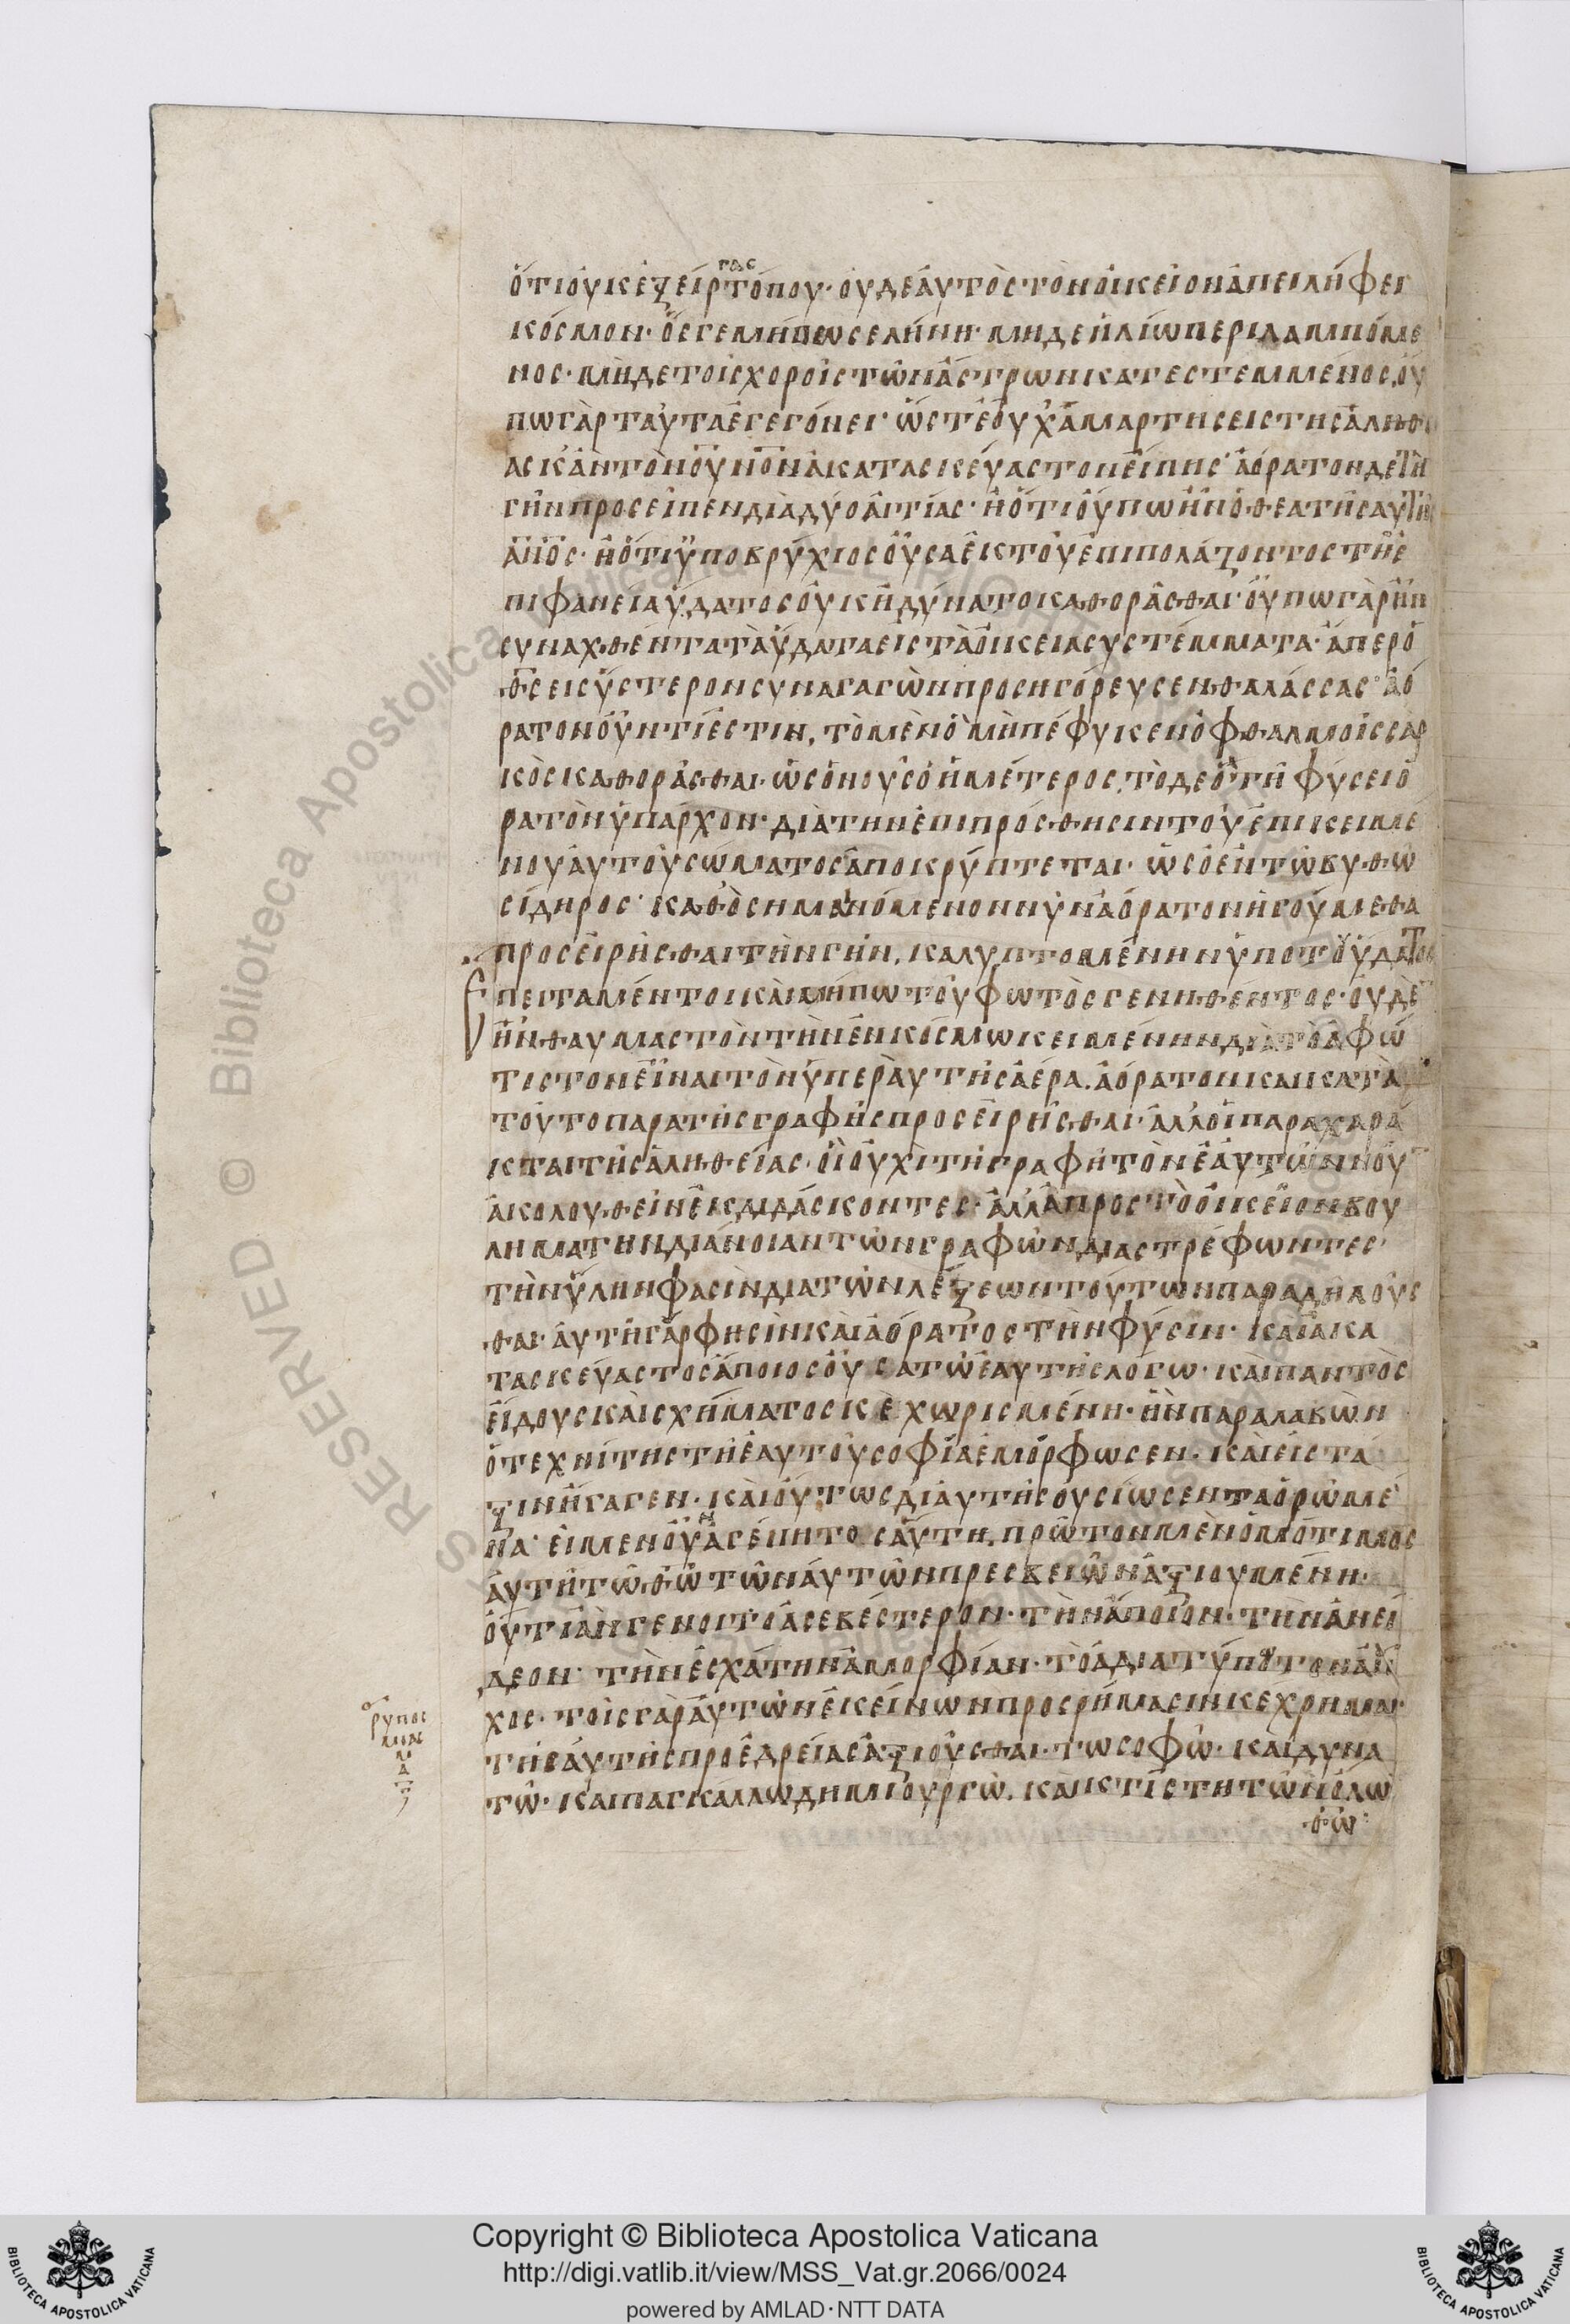 ὅτι οὐκ ἐξείργαστό που· οὐδὲ αὐτὸς τὸν οἰκεῖον ἀπειλήφει
κόσμον· ὅς γε μήπω σελήνη· μηδὲ ἡλίω περιλαμπόμε
νος· μηδὲ τοῖς χοροῖς τῶν ἄστρων κατεστεμμένος, οὔ
πω γὰρ ταῦτα ἐγεγόνει· ὥστε οὐχ ἁμαρτήσεις τῆς ἀληθεί
ας κἂν τὸν οὐνον ἀκατασκεύαστον εἴπης· ἀόρατον δὲ τὴν
γῆν προσεῖπεν διὰ δύο αἰτίας· ἢ ὅτι οὔπω ἦν ὁ θεατὴς αὐτῆς
ἄνος· ἢ ὅτι ὑποβρύχιος οὖσα ἐκ τοῦ ἐπιπολάζοντος τῆ ἐ
πιφανεία ὕδατος οὐκ ἠδύνατο καθορᾶσθαι· οὔπω γὰρ ἦν
συναχθέντα τὰ ὕδατα εἰς τὰ οἰκεῖα συστέμματα· ἅπερ ὁ
θς εἰς ὕστερον συναγαγὼν προσηγόρευσεν θαλάσσας· ἀό
ρατον οὖν τί ἐστιν, τὸ μὲν ὃ μὴ πέφυκεν ὀφθαλμοῖς σαρ
κὸς καθορᾶσθαι· ὡς ὁ νοῦς ὁ ἡμέτερος, τὸ δὲ ὃ τῆ φύσει ὁ
ρατὸν ὑπάρχον· διὰ τὴν ἐπιπρόσθησιν τοῦ ἐπικειμέ
νου αὐτοῦ σώματος ἀποκρύπτεται· ὡς ὁ ἐν τῶ βυθῶ
σίδηρος· καθ' ὃ σημαινόμενον νῦν ἀόρατον ἡγούμεθα
προσειρῆσθαι τὴν γῆν, καλυπτομένην ὑπὸ τοῦ ὕδατος
ἔπειτα μέντοι καὶ μήπω τοῦ φωτὸς γεννηθέντος· οὐδὲ
ἦν θαυμαστὸν τὴν ἐν κόσμω κειμένην διὰ τὸ ἀφώ
τιστον εἶναι τὸν ὑπὲρ αὐτῆς ἀέρα. ἀόρατον καὶ κατὰ
τοῦτο παρὰ τῆς γραφῆς προσειρῆσθαι· ἀλλ' οἱ παραχαρά
κται τῆς ἀληθείας· οἳ οὐχὶ τῆ γραφῆ τὸν ἑαυτῶν νοῦν
ἀκολουθεῖν ἐκδιδάσκοντες· ἀλλὰ πρὸς τὸ οἰκεῖον βού
λημα τὴν διάνοιαν τῶν γραφῶν διαστρέφωντες·
τὴν ὕλην φασὶν διὰ τῶν λέξεων τούτων παραδηλοῦς
θαι· αὐτὴ γάρ φησὶν καὶ ἀόρατος τὴν φύσιν· καὶ ἀκα
τασκεύαστος ἄποιος οὖσα τῶ ἑαυτῆς λόγω· καὶ παντὸς
εἴδους καὶ σχήματος κεχωρισμένη· ἣν παραλαβὼν
ὁ τεχνίτης τῆ ἑαυτοῦ σοφία ἐμόρφωσεν· καὶ εἰς τά
ξιν ἤγαγεν· καὶ οὕτως δι' αὐτῆς οὐσίωσεν τὰ ὁρώμε
να· εἰ μὲν οὖν ἀγένητος αὕτη, πρῶτον μὲν ὁμότιμος
αὐτὴ τῶ θῶ τῶν αὐτῶν πρεσβειῶν ἀξιουμένη·
οὗ τί ἂν γένοιτο ἀσεβέστερον· τὴν ἄποιον· τὴν ἀνεί
δεον· τὴν ἐσχάτην ἀμορφίαν· τὸ ἀδιατύπωτον αἶς
χος· τοῖς γὰρ αὐτῶν ἐκείνων προσρήμασιν κέχρημαι·
τῆς αὐτῆς προεδρείας ἀξιοῦσθαι· τῶ σοφῶ· καὶ δυνα
τῶ· καὶ παγκάλλω δημιουργῶ. καὶ κτίστη τῶν ὅλων
θῶ·